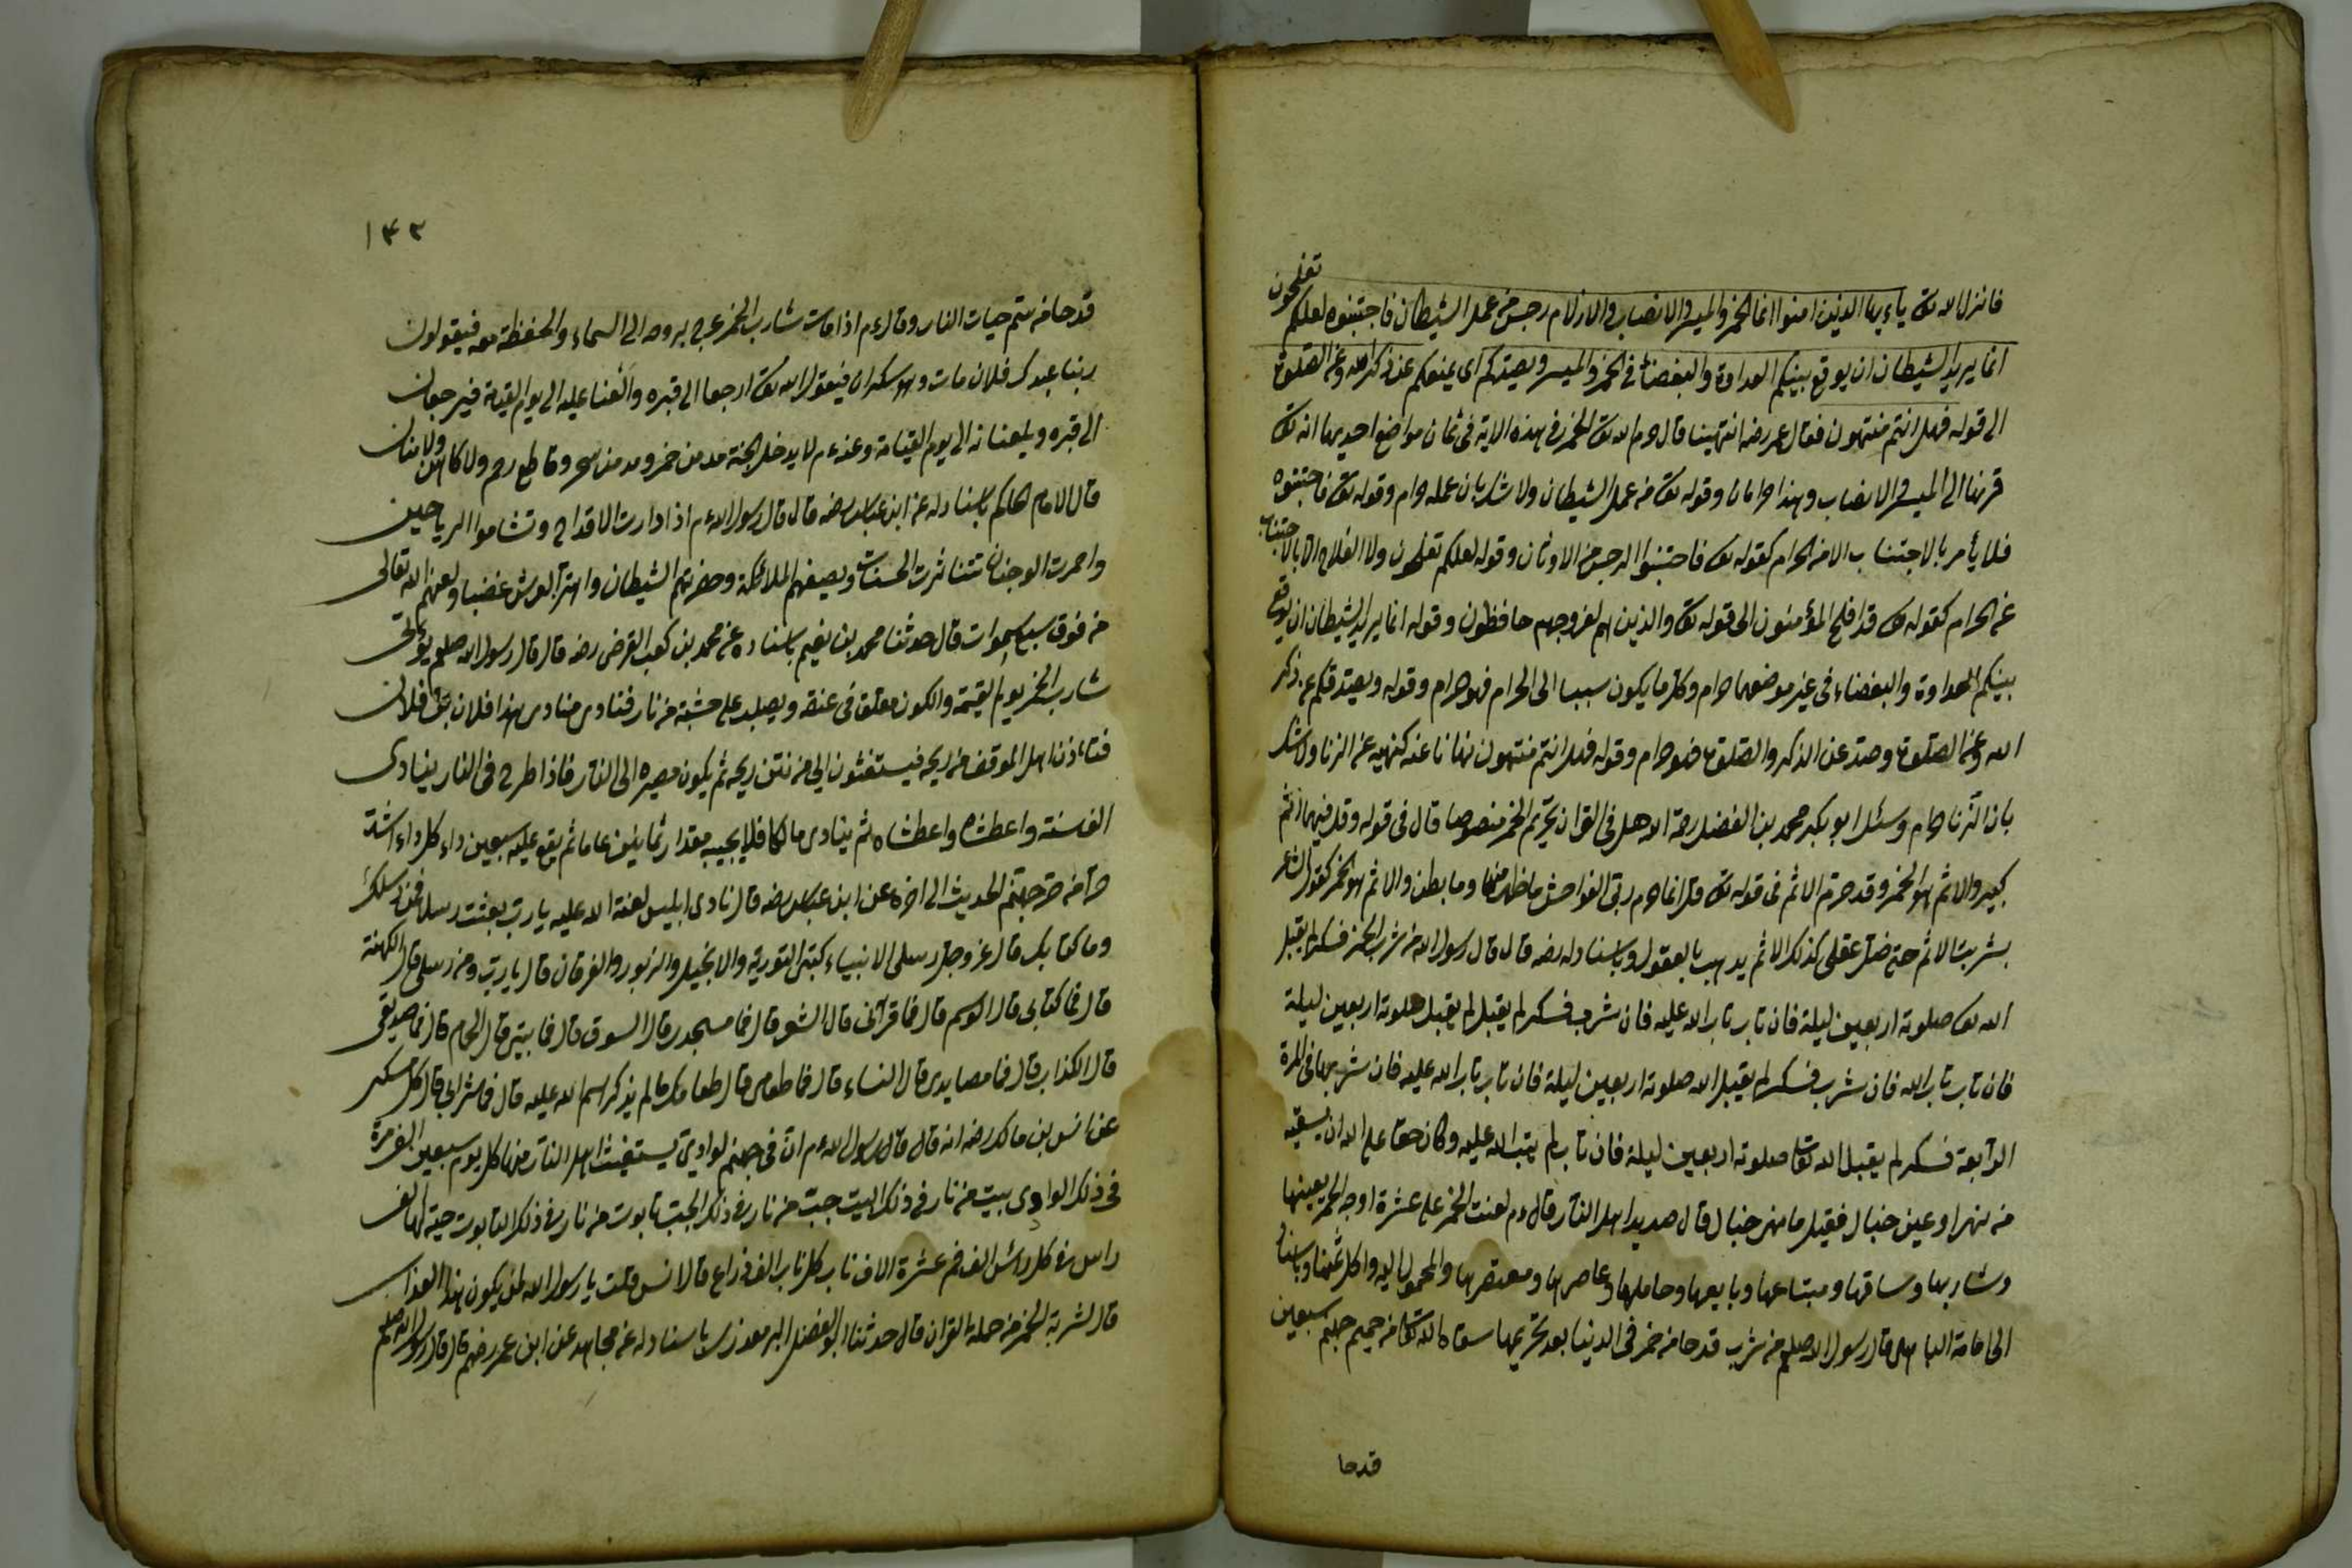 تفلحون
فانزل الله تعالى ياءيها الذين امنوا انما الخمر والميسر والانصاب والازلام رجس من عمل الشيطان فاجتنبوه لعلكم
انما يريد الشيطان ان يوقع بينكم العداوة والبغضاء في الخمر والميسر ويصدكم اى يمنعكم عن ذكر الله وعن الصلوة
الى قوله فهل انتم منتهون فقال عمر رضه انتهينا قال حرم الله تعالى الخمر في هذه الاية في ثمان مواضع احديها انه تعالى
قرنها الى الميسر والانصاب وهذا حرامان وقوله تعالى من عمل الشيطان ولا شك بان عمله حرام وقوله تعالى فاجتنبوه
فلا يأمر بالاجتناب الا من الحرام كقوله تعالى فاجتنبوا الرجس من الاوثان وقوله لعلكم تفلحون ولا الفلاح الا بالاجتناب
عن الحرام كقوله تعالى قد افلح المؤمنون الى قوله تعالى والذين هم لفروجهم حافظون وقوله انما يريد الشيطان ان يوقع
بينكم العداوة والبغضاء في غير موضعهما حرام وكل ما يكون سببا الى الحرام فهو حرام وقوله ويصدكم عن ذكر
الله وعن الصلوة وصد عن الذكر والصلوة فهو حرام وقوله فهل انتم منتهون نهانا عنه كنهيه عن الزنا ولا شك
بان الزنا حرام وسئل ابو بكر محمد بن الفضل رحمة الله هل في القران تحريم الخمر منصوصا قال في قوله وقل فيهما اثم
كبير والاثم هو الخمر وقد حرم الاثم في قوله تعالى قل انما حرم ربى الفواحش ما ظهر منها وما بطن والاثم هو الخمر كقول الشاعر
بشربت الاثم حتى ضل عقلى كذلك الاثم يذهب بالعقول وباسناد له رضه قال قال رسول الله من شرب الخمر فسكر لم يقبل
الله تعالى صلوته اربعين ليلة فان تاب تاب الله عليه فان شرب فسكر لم يقبل لم يقبل صلوته اربعين ليلة
فان تاب تاب الله فان شرب فسكر لم يقبل الله صلوته اربعين ليلة فان تاب تاب الله عليه فان شربها في المرة
الرابعة فسكر لم يقبل الله تعالى صلوته اربعين ليلة فان تاب لم يتب الله عليه وكان حقا على الله ان يسقيه
من نهر او عين خبال فقيل ما نهر خبال قال صديد اهل النار قال عم لعنت الخمر على عشرة اوجه الخمر بعينها
وشاربها وساقها ومبتاعها وبايعها وحاملها وعاصرها ومعتصرها والمحمول اليه واكل ثمنها وباسناد
الى امامة الباهلى قال رسول الله صلعم من شرب قدحا من خمر في الدنيا بعد تحريمها سقاه الله تعالى من حميم جهنم سبعين
قدحا
١٤٣
قدحا من سم حيات النار وقال عم اذا مات شارب الخمر عرج بروحه الى السماء والحفظة معه فيقولون
ربنا عبدك فلان مات وهو سكران فيقول الله تعالى ارجعا الى قبره والعنا عليه الى يوم القيمة فيرجعان
الى قبره ويلعنانه الى يوم القيامة وعنه عم لا يدخل الجنة مدمن خمر ومدمن سحر وقاطع رحم ولا كاهن ولا منان
قال الامام الحاكم باسناد له عن ابن عباس رضه قال قال رسول الله عم اذا دارت الاقداح وتشاموا الرياحين
واحمرت الوجنات تناثرت الحسنات ويصيفهم الملائكة وحضرتهم الشيطان واهتز العرش غضبا ولعنهم الله تعالى
من فوق سبع سموات قال حدثنا محمد بن نعيم باسناده عن محمد بن كعب القرضى رضه قال قال رسول الله صلعم يؤتى
شارب الخمر يوم القيمة والكون معلق في عنقه ويصلب على خشبة من نار فنادى منادى هذا فلان بن فلان
فتاءذن اهل الموقف من ريحه فيستغثون الى من نتن ريحه ثم يكون مصيره الى النار فاذا طرح في النار ينادى
الف سنة واعطشاه واعطشاه ثم ينادى مالكا فلا يجيبه مقدار ثمانين عاما ثم يقع عليه سبعين داء كل داء اشد
حرا من حر جهنم الحديث الى اخره عن ابن عباس رضه قال نادى ابليس لعنة الله عليه يارب بعثت رسلا فمن رسلك
وما كتابك قال عز وجل رسلى الانبياء كتبى التورية والانجيل والزبور والفرقان قال يارب ومن رسلى قال الكهنة
قال فما كتابى قال الوسم قال فما قرآنى قال الشعر قال فما مسجد قال السوق قال فما بيتى قال الحمام قال فما صديقى
قال الكذاب قال فما مصايدى قال النساء قال فما طعامى قال طعامك ما لم يذكر اسم الله عليه قال فما شرابى قال كل مسكر
عن انس بن مالك رضه انه قال قال رسول الله عم ان في جهنم لوادى يستغيث اهل النار منها كل يوم سبعين الف مرة
في ذلك الوادى بيت من نار في ذلك البيت جب من نار في ذلك الجب تابوت من نار في ذلك التابوت حية لها الف
راس في كل راس الف فم عشرة الاف ناب كل ناب الف ذراع قال انس قلت يا رسول الله لمن يكون هذا العذاب
قال لشربة الخمر من حملة القران قال حدثنا ابو الفضل البرمعدزى باسناد له عن مجاهد عن ابن عمر رضهم قال قال رسول الله صلعم